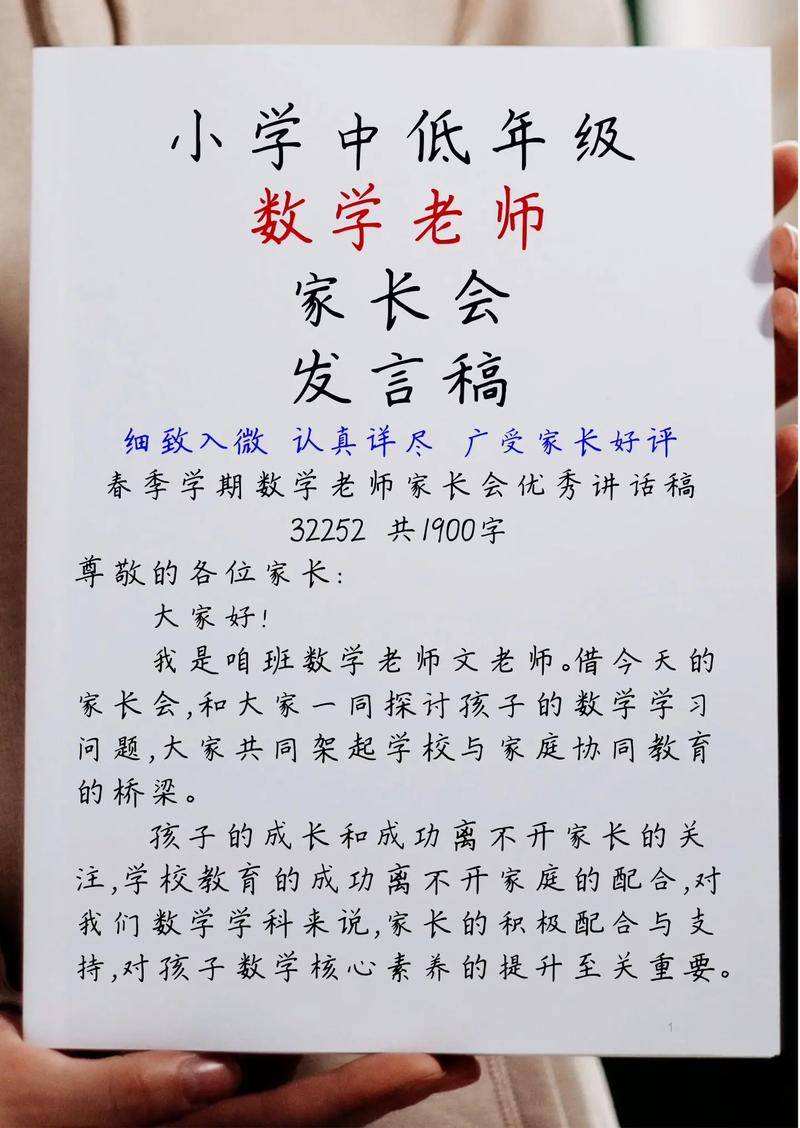 小学中低年级
数学老师
家长会
发言稿
细致入微 认真详尽 广受家长好评
春季学期数学老师家长会优秀讲话稿
32252 共1900字
尊敬的各位家长:
大家好!
我是咱班数学老师文老师。借今天的
家长会,和大家一同探讨孩子的数学学习
问题,大家共同架起学校与家庭协同教育
的桥梁。
孩子的成长和成功离不开家长的关
注,学校教育的成功离不开家庭的配合,对
我们数学学科来说,家长的积极配合与支
持,对孩子数学核心素养的提升至关重要。
1